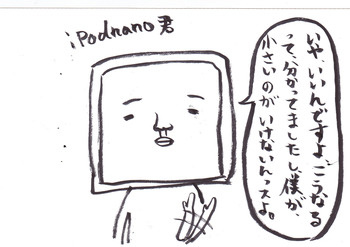 iPodnano君
いや、いいんですよ、こうなる
って、分かってましたし、僕が、
小さいのがいけないんっスよ。